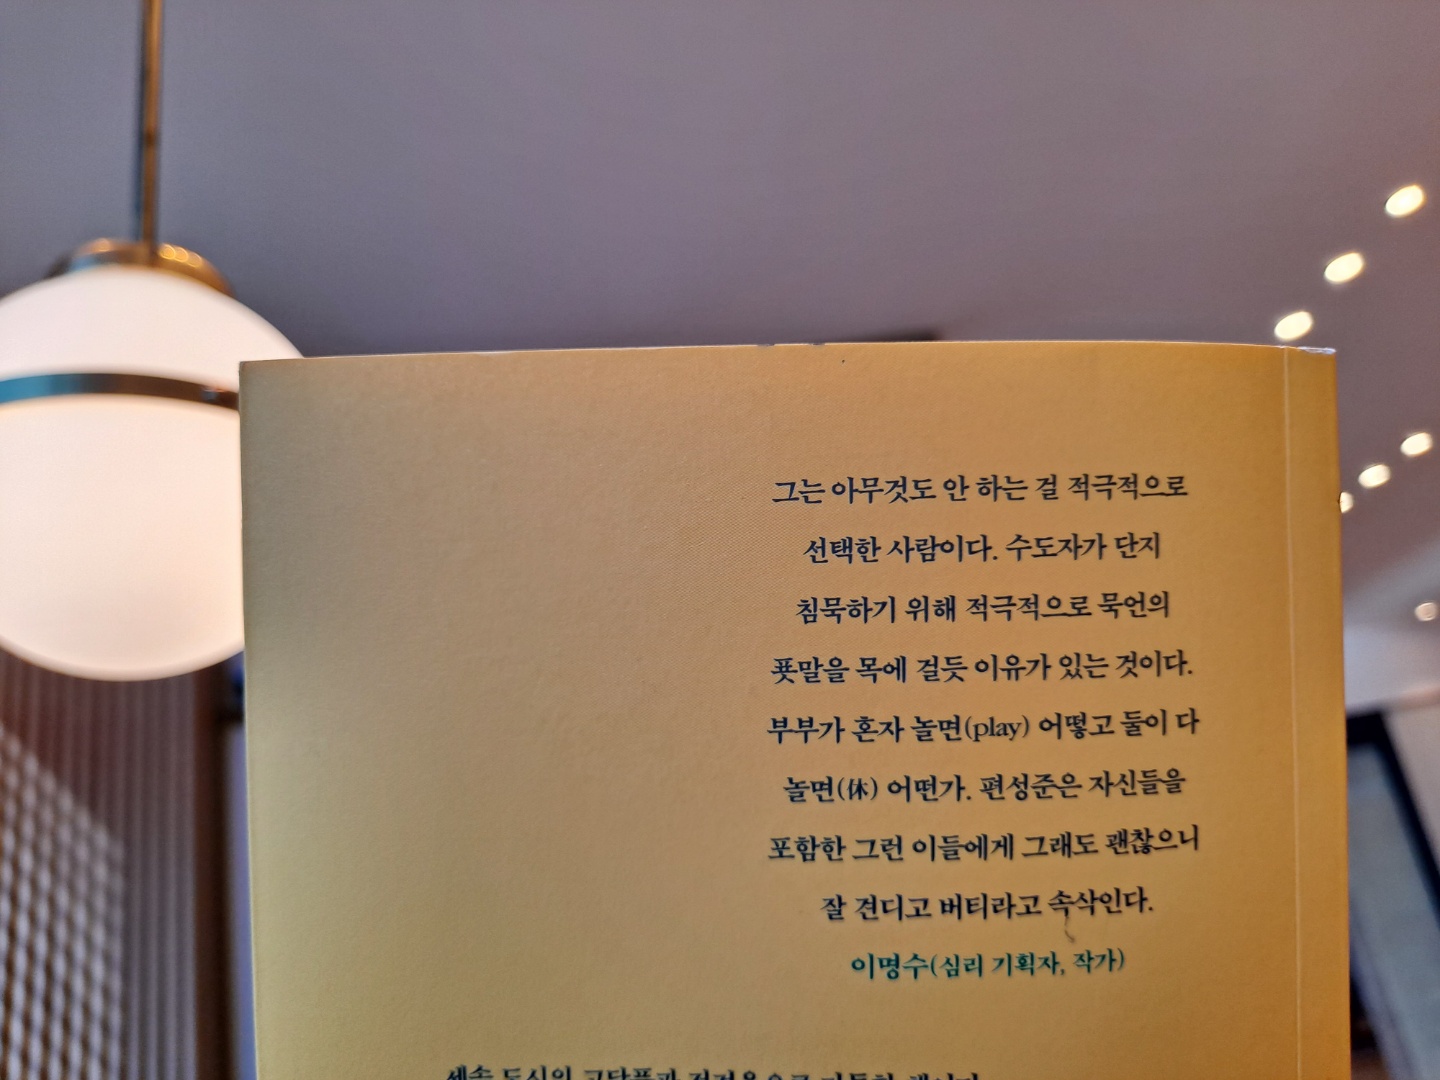 그는 아무것도 안 하는 걸 적극적으로
선택한 사람이다. 수도자가 단지
침묵하기 위해 적극적으로 묵언의
푯말을 목에 걸듯 이유가 있는 것이다.
부부가 혼자 놀면(play) 어떻고 둘이 다
놀면(休) 어떤가. 편성준은 자신들을
포함한 그런 이들에게 그래도 괜찮으니
잘 견디고 버티라고 속삭인다.
이명수(심리 기획자, 작가)